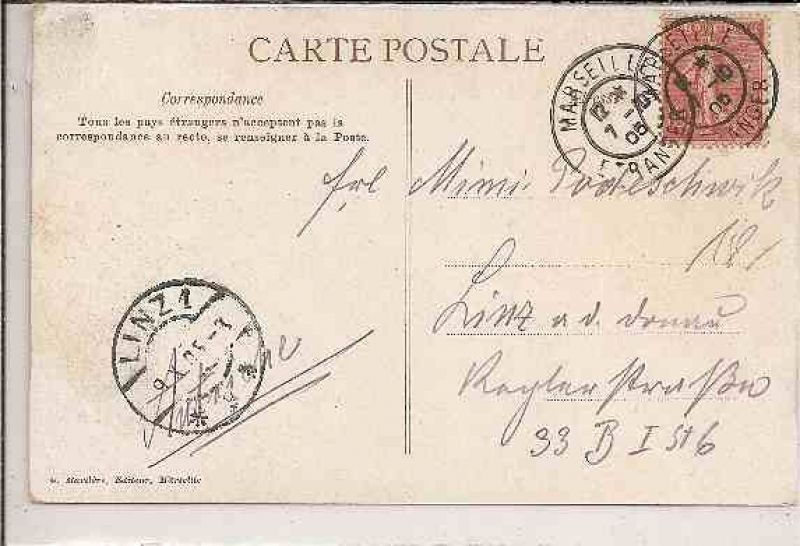 CARTE POSTALE
Correspondance
Tous les pays étrangers n'acceptent pas la
correspondance au recto, se renseigner à la Poste.
MARSEILLE
7 10
06
ETRANGER
MARSEILLE
10
06
frl Mimi Podeschwik
Linz a. d. Donau
33 B I St 6
LINZ 1
Éditeur, Marseille